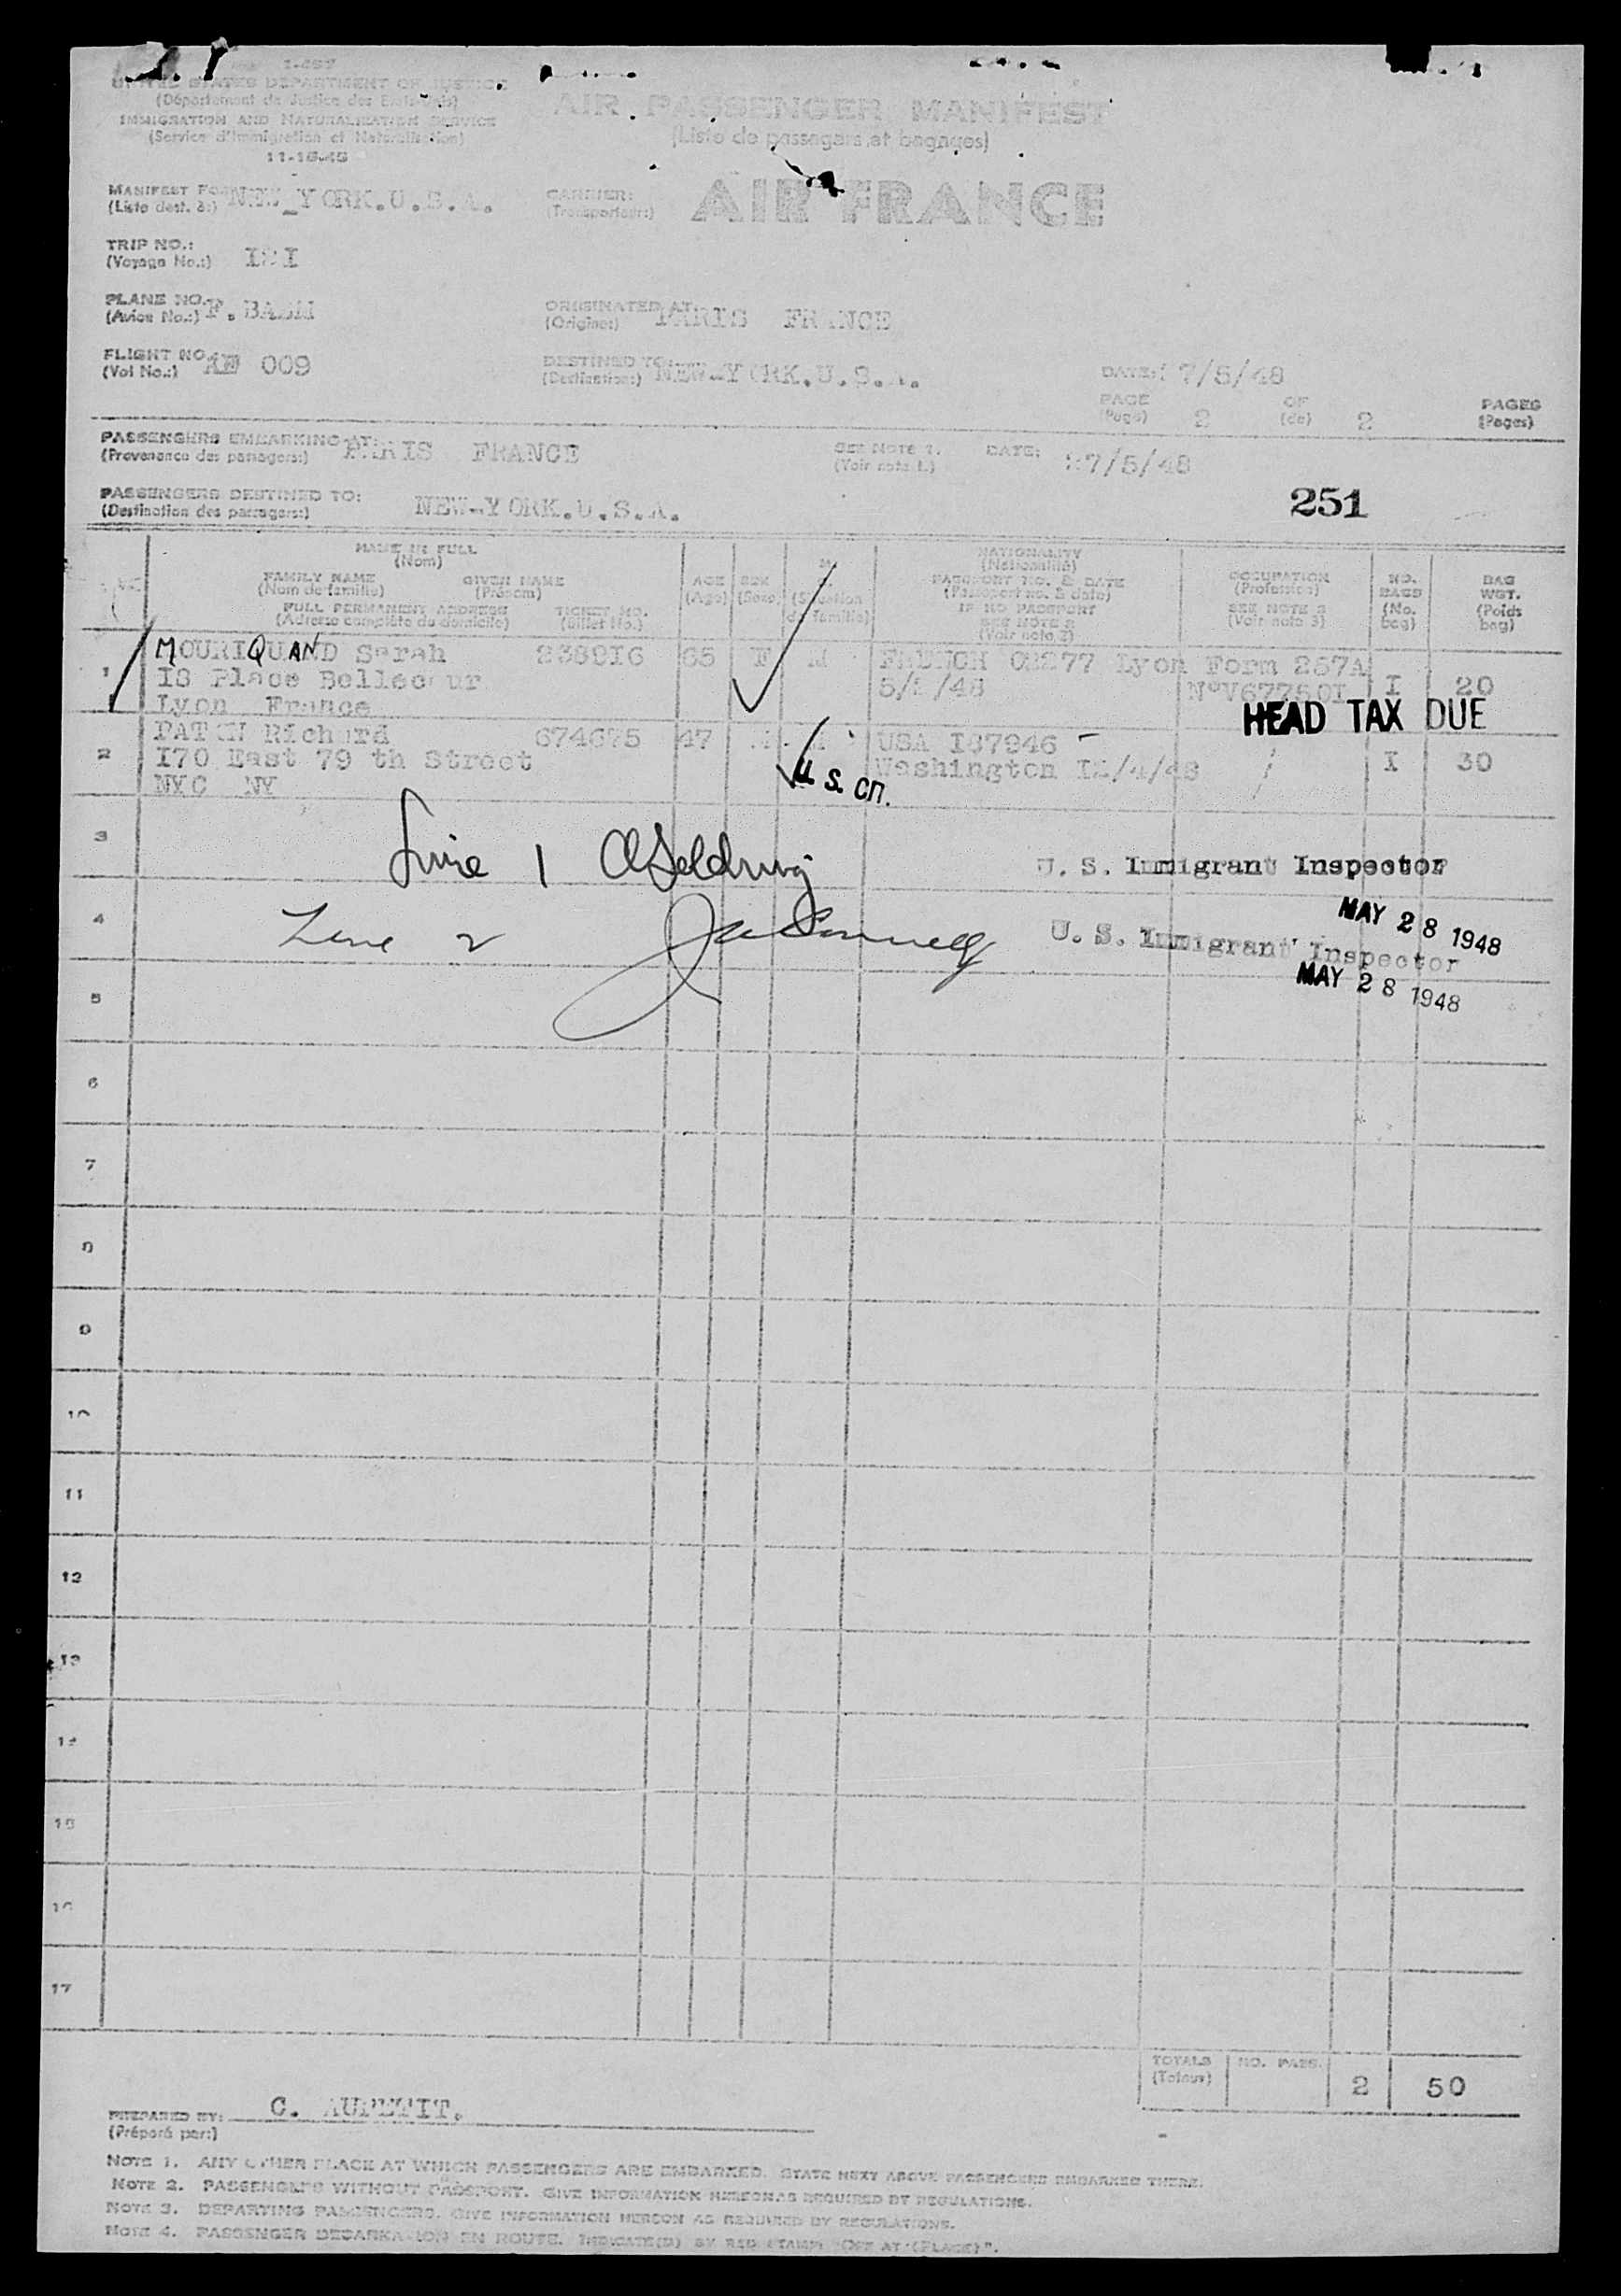 I-467
UNITED STATES DEPARTMENT OF JUSTICE
(Département de Justice des Etats-Unis)
IMMIGRATION AND NATURALIZATION SERVICE
(Service d'Immigration et Naturalisation)
11-16-45
AIR PASSENGER MANIFEST
(Liste de passagers et bagages)
MANIFEST FOR NEW_YORK.U.S.A.
(Liste dest. à:)
CARRIER: AIR FRANCE
(Transporteur:)
TRIP NO.:
(Voyage No.:)
PLANE NO.:
(Avion No.:)
ORIGINATED AT: PARIS FRANCE
(Origine:)
FLIGHT NO.: 009
(Vol No.:)
DESTINED TO: NEW-YORK.U.S.A.
(Destination:)
DATE: 7/5/48
PAGE 2 OF 2 PAGES
(Page) (de) (Pages)
PASSENGERS EMBARKING AT: PARIS FRANCE
(Provenance des passagers:)
SEE NOTE 1. DATE: 27/5/48
(Voir note 1.)
PASSENGERS DESTINED TO: NEW-YORK.U.S.A.
(Destination des passagers:)
251
NAME IN FULL
(Nom)
FAMILY NAME GIVEN NAME
(Nom de famille) (Prénom)
FULL PERMANENT ADDRESS TICKET NO.
(Adresse complète du domicile) (Billet No.)
AGE
(Age)
SEX
(Sexe)
(Situation
de famille)
NATIONALITY
(Nationalité)
PASSPORT NO. & DATE
(Passeport no. & date)
IF NO PASSPORT
SEE NOTE 2
(Voir note 2)
OCCUPATION
(Profession)
SEE NOTE 3
(Voir note 3)
NO.
BAGS
(No.
bag)
BAG
WGT.
(Poids
bag)
1 MOURIQUAND Sarah 238916 65 F M FRENCH 02277 Lyon Form 257A
I8 Place Bellecour 5/5/48 N°V677601 I 20
Lyon France
HEAD TAX DUE
2 Richard 674675 47 USA I87946
I70 East 79 th Street Washington I2/4/48 I 30
NYC NY
U. S. CIT.
3
Line 1
U. S. Immigrant Inspector
MAY 28 1948
4
Line 2
U. S. Immigrant Inspector
MAY 28 1948
5
6
7
8
9
10
11
12
13
14
15
16
17
TOTALS NO. PASS. 2 50
(Totaux)
PREPARED BY: C. AUPETIT.
(Préparé par:)
NOTE 1. ANY OTHER PLACE AT WHICH PASSENGERS ARE EMBARKED. STATE NEXT ABOVE PASSENGERS EMBARKED THERE.
NOTE 2. PASSENGERS WITHOUT PASSPORT. GIVE INFORMATION HEREON AS REQUIRED BY REGULATIONS.
NOTE 3. DEPARTING PASSENGERS. GIVE INFORMATION HEREON AS REQUIRED BY REGULATIONS.
NOTE 4. PASSENGER DEBARKATION EN ROUTE. INDICATE(D) BY RED STAMP "OFF AT (PLACE)".